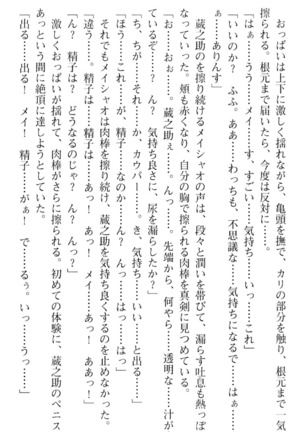 おっぱいは上下に激しく揺れながら、亀頭を撫で、カリの部分を触り、根元まで一気に
擦られる。根元まで届いたら、今度は反対に――。
「はぁ……うう……メイ……す、すごい……気持ち……いっ……これ」
「いいのか？　ふふ。あぁ……わっちも、不思議な……気持ちになるで……はぁ……
あ……ありんす」
　蔵之助のを擦り続けるメイシャオの声は、段々と潤いを帯びて、漏らす吐息も熱っぽく
なっていった。頬も赤くなり、自分の胸で擦られる肉棒を真剣に見つめている。
「お……おぉ……。蔵之助ぇ……。んっ……。先端から、何やら……透明な……汁が
ているぞ……？　ん？　気持ち良さに、尿を漏らしたか？」
「あ、ちが……それ……か、カウパー……。き、気持ち……いい……と出る……」
「ほう……これ……が、精子……なのか……んっ……はっ……はっ」
「違う……。精子は……精子は……あっ！　あっ！　メイ……！」
「ん？　精子は？　どうなるのじゃ？　ん？　んっ？」
　それでもメイシャオは肉棒を擦り続け、蔵之助を気持ち良くするのを止めない。
「んっ！　精子は……あっ！　メイ……！　あっ！　ああっ！」
　激しくおっぱいが揺れて、肉棒がさらに擦られる。初めての体験に、蔵之助のペニス
あっという間に絶頂に達しようとしていた。
「出る……出る！　メイ！　精子がぁ！　で……でるぅ。いっ……うっ……」